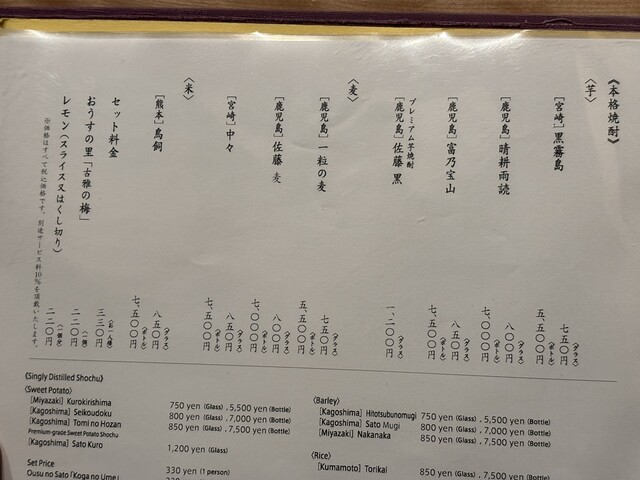 《本格焼酎》
〈芋〉
［宮崎］黒霧島
七五〇円（グラス）
五、五〇〇円（ボトル）
［鹿児島］晴耕雨読
八〇〇円（グラス）
七、〇〇〇円（ボトル）
［鹿児島］富乃宝山
八五〇円（グラス）
七、五〇〇円（ボトル）
プレミアム芋焼酎
［鹿児島］佐藤 黒
一、二〇〇円（グラス）
〈麦〉
［鹿児島］一粒の麦
七五〇円（グラス）
五、五〇〇円（ボトル）
［鹿児島］佐藤 麦
八〇〇円（グラス）
七、〇〇〇円（ボトル）
［宮崎］中々
八五〇円（グラス）
七、五〇〇円（ボトル）
〈米〉
［熊本］鳥飼
八五〇円（グラス）
七、五〇〇円（ボトル）
セット料金
三三〇円（お一人様）
おうすの里「古雅の梅」
二二〇円（一個）
レモン（スライス又はくし切り）
二二〇円（一個分）
※価格はすべて税込価格です。別途サービス料10％を頂戴いたします。
《Singly Distilled Shochu》
〈Sweet Potato〉
［Miyazaki］ Kurokirishima 750 yen (Glass) , 5,500 yen (Bottle)
［Kagoshima］ Seikoudoku 800 yen (Glass) , 7,000 yen (Bottle)
［Kagoshima］ Tomi no Hozan 850 yen (Glass) , 7,500 yen (Bottle)
Premium-grade Sweet Potato Shochu
［Kagoshima］ Sato Kuro 1,200 yen (Glass)
Set Price 330 yen (1 person)
Ousu no Sato「Koga no Ume」
〈Barley〉
［Kagoshima］ Hitotsubunomugi 750 yen (Glass) , 5,500 yen (Bottle)
［Kagoshima］ Sato Mugi 800 yen (Glass) , 7,000 yen (Bottle)
［Miyazaki］ Nakanaka 850 yen (Glass) , 7,500 yen (Bottle)
〈Rice〉
［Kumamoto］ Torikai 850 yen (Glass) , 7,500 yen (Bottle)